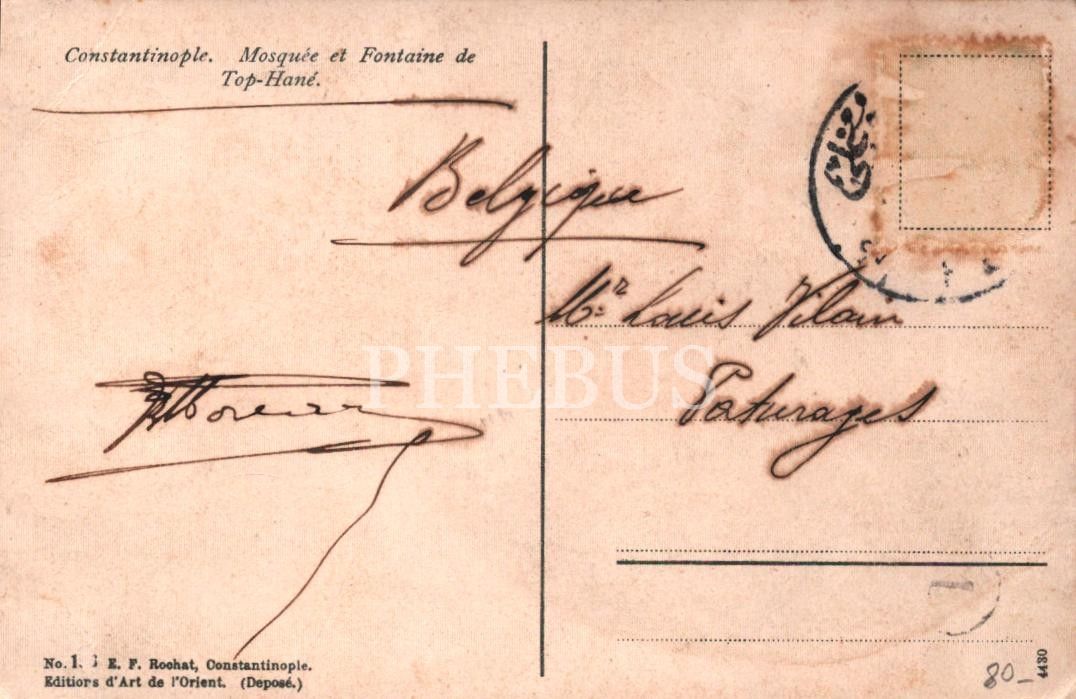 Constantinople. Mosquée et Fontaine de
Top-Hané.
Belgique
Mr Louis Vilain
Paturages
PHEBUS
E. F. Rochat, Constantinople.
Editions d'Art de l'Orient. (Deposé.)
4430
80-